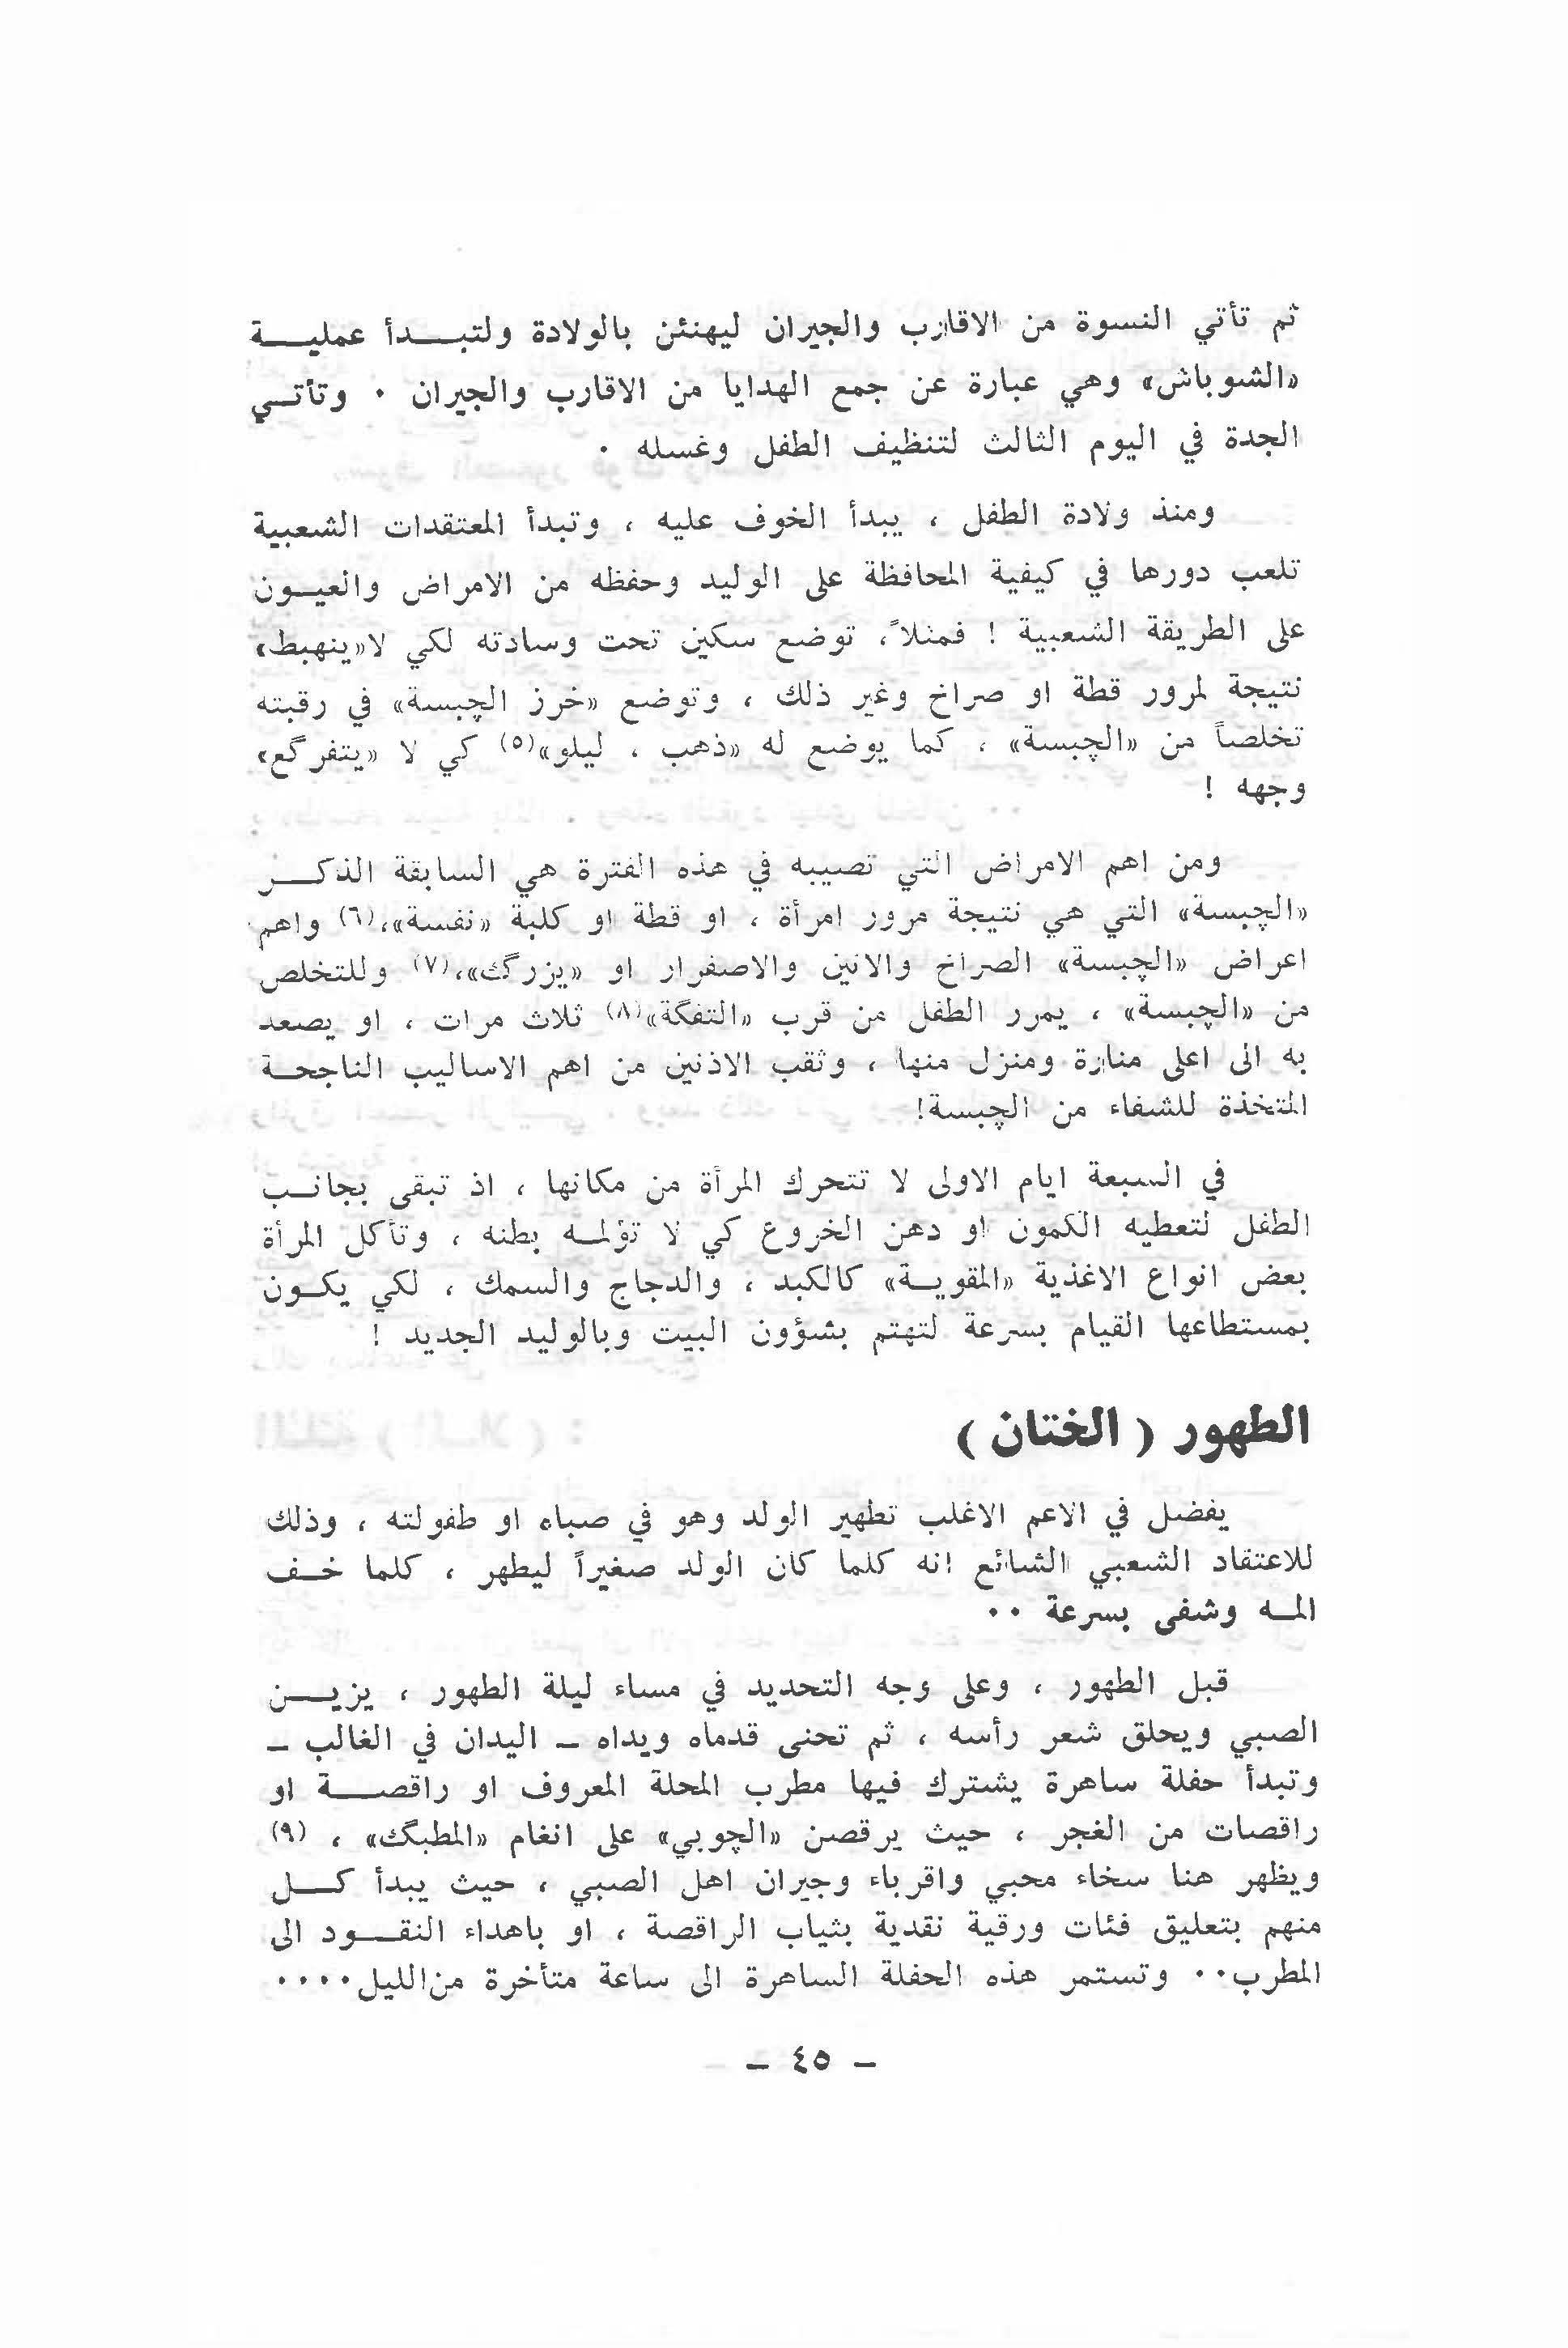 ثم تأتي النسوة من الاقارب والجيران ليهنئن بالولادة ولتبدأ عملية
«الشوباش» وهي عبارة عن جمع الهدايا من الاقارب والجيران . وتأتي
الجدة في اليوم الثالث لتنظيف الطفل وغسله .
ومنذ ولادة الطفل ، يبدأ الخوف عليه ، وتبدأ المعتقدات الشعبية
تلعب دورها في كيفية المحافظة على الوليد وحفظه من الامراض والعيون
على الطريقة الشعبية ! فمثلاً، توضع سكين تحت وسادته لكي لا«ينهبط»
نتيجة لمرور قطة او صراخ وغير ذلك ، وتوضع «خرز الچبسة» في رقبته
تخلصاً من «الچبسة» ، كما يوضع له «ذهب ، ليلو»(٥) كي لا «يتفرگع»
وجهه !
ومن اهم الامراض التي تصيبه في هذه الفترة هي السابقة الذكر
«الچبسة» التي هي نتيجة مرور امرأة ، او قطة او كلبة «نفسة»،(٦) واهم
اعراض «الچبسة» الصراخ والانين والاصفرار او «يزرگ»،(٧) وللتخلص
من «الچبسة» ، يمرر الطفل من قرب «التفگة»(٨) ثلاث مرات ، او يصعد
به الى اعلى منارة ومنزل منها ، وثقب الاذنين من اهم الاساليب الناجحة
المتخذة للشفاء من الچبسة!
في السبعة ايام الاولى لا تتحرك المرأة من مكانها ، اذ تبقى بجانب
الطفل لتعطيه الكمون او دهن الخروع كي لا تؤلمه بطنه ، وتأكل المرأة
بعض انواع الاغذية «المقوية» كالكبد ، والدجاج والسمك ، لكي يكون
بمستطاعها القيام بسرعة لتهتم بشؤون البيت وبالوليد الجديد !
الطهور ( الختان )
يفضل في الاعم الاغلب تطهير الولد وهو في صباه او طفولته ، وذلك
للاعتقاد الشعبي الشائع انه كلما كان الولد صغيراً ليطهر ، كلما خف
المه وشفى بسرعة ..
قبل الطهور ، وعلى وجه التحديد في مساء ليلة الطهور ، يزين
الصبي ويحلق شعر رأسه ، ثم تحنى قدماه ويداه - اليدان في الغالب -
وتبدأ حفلة ساهرة يشترك فيها مطرب المحلة المعروف او راقصة او
راقصات من الغجر ، حيث يرقصن «الچوبي» على انغام «المطبگ» ، (٩)
ويظهر هنا سخاء محبي واقرباء وجيران اهل الصبي ، حيث يبدأ كل
منهم بتعليق فئات ورقية نقدية بثياب الراقصة ، او باهداء النقود الى
المطرب.. وتستمر هذه الحفلة الساهرة الى ساعة متأخرة من الليل....
- ٤٥ -